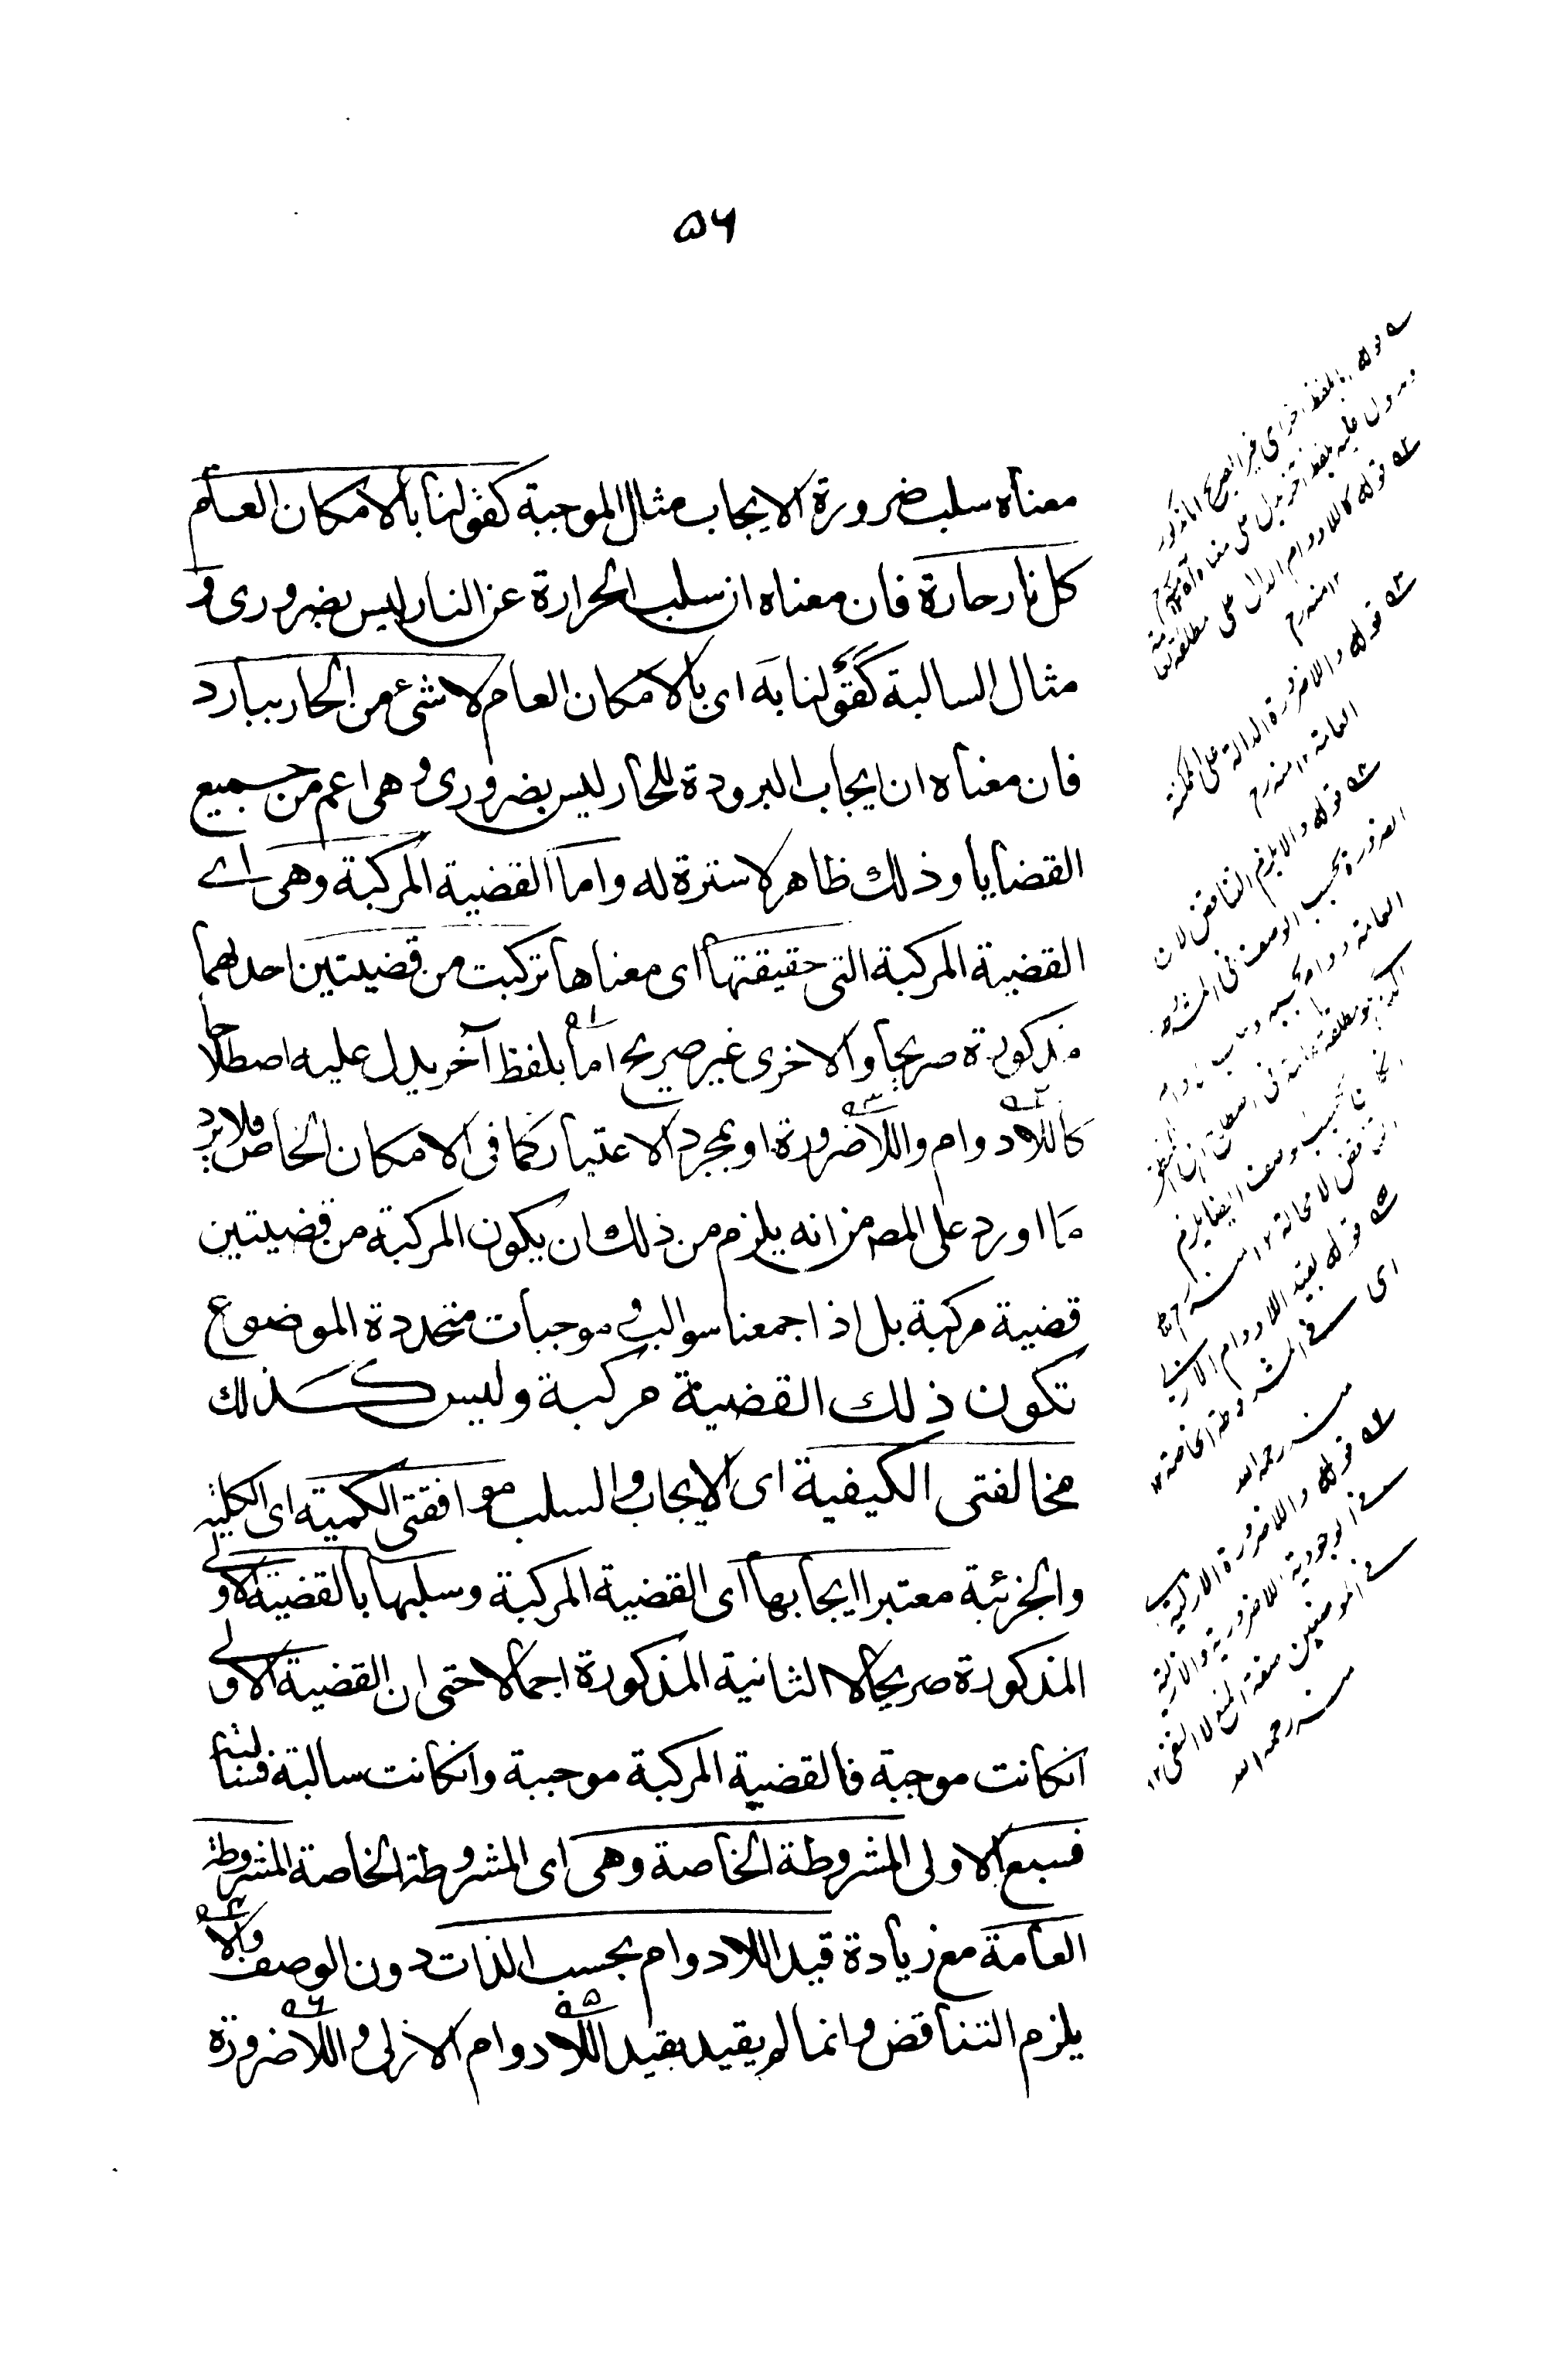 ۵۶
معناه سلب ضرورة الايجاب مثال الموجبة كقولنا بالامكان العام
كل نار حارة فان معناه ان سلب الحرارة عن النار ليس بضرورى و
مثال السالبة كقولنا به اى بالامكان العام لا شىء من الحار ببارد
فان معناه ان ايجاب البرودة للحار ليس بضرورى وهى اعم من جميع
القضايا وذلك ظاهر لا سترة له واما القضية المركبة وهى اے
القضية المركبة التى حقيقتها اى معناها تركبت من قضيتين احدهما
مذكورة صريحا والاخرى غير صريح اما بلفظ آخر يدل عليه اصطلاحا
كاللادوام واللاضرورة او بمجرد الاعتبار كما فى الامكان الخاص فلا يرد
ما اورد على المص من انه يلزم من ذلك ان يكون المركبة من قضيتين
قضية مركبة بل اذا جمعنا سوالب و موجبات متحددة الموضوع
تكون ذلك القضية مركبة وليس كذلك
مخالفتى الكيفية اى الايجاب والسلب موافقتى الكمية اى الكلية
والجزئية معتبرا ايجابها اى القضية المركبة وسلبها بالقضية الاولے
المذكورة صريحا لا الثانية المذكورة اجمالا حتى ان القضية الاولے
انكانت موجبة فالقضية المركبة موجبة وانكانت سالبة فسالبة
فسبع الاولى المشروطة الخاصة وهى اى المشروطة الخاصة المشروطة
العامة مع زيادة قيد اللادوام بحسب الذات دون الوصف والا
يلزم التناقض وانما لم يقيد بقيد اللادوام الازلى و اللاضرورة
قوله بلفظ آخر اى غير الصريح المذكور
قوله كاللادوام الدال على مطلقة
۱۲ منه رح
قوله واللاضرورة الدالة على الممكنة
العامة ۱۲ منه رح
قوله والا يلزم التناقض لان
الضرورة بحسب الوصف فى المشروطة
العامة دوام بحسبه
بحسب وصف ايضا يلزم
التناقض لا محالة ۱۲ منه رح
قوله بقيد اللادوام الازلى
اى فى المشروطة الخاصة ۱۲
منه رحمه الله
قوله واللاضرورة الازلية
فى الوجودية اللاضرورية والازلية
فى الموضعين صفة المنفى لا النفى ۱۲
منه رحمه الله